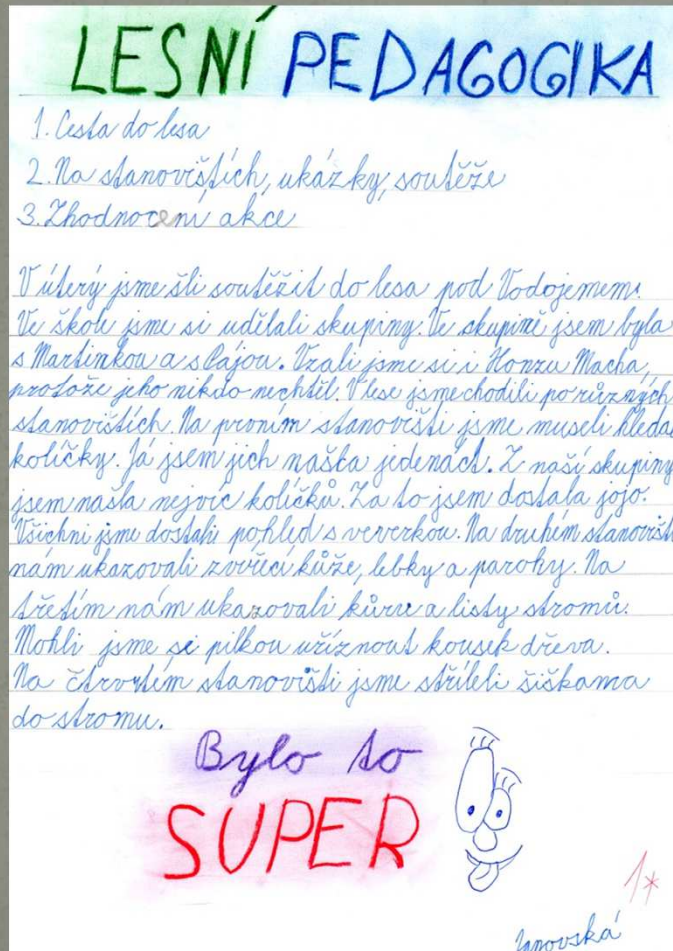 LESNÍ PEDAGOGIKA
1. Cesta do lesa
2. Na stanovištích, ukázky, soutěže
3. Zhodnocení akce
V úterý jsme šli soutěžit do lesa pod Vodojemem.
Ve škole jsme si udělali skupiny. Ve skupině jsem byla
s Martinkou a s Cájou. Vzali jsme si i Honzu Macha,
protože jeho nikdo nechtěl. V lese jsme chodili po různých
stanovištích. Na prvním stanovišti jsme museli hleda
kolíčky. Já jsem jich našla jedenáct. Z naší skupiny
jsem nasla nejvíc kolíčků. Za to jsem dostala jojo.
Všichni jsme dostali pohled s veverkou. Na druhém stanovišt
nám ukazovali zvířecí kůže, lebky a parohy. Na
třetím nám ukazovali kůru a listy stromů.
Mohli jsme si pilkou uříznout kousek dřeva.
Na čtvrtém stanovišti jsme stříleli šiškama
do stromu.
Bylo to
SUPER
1*